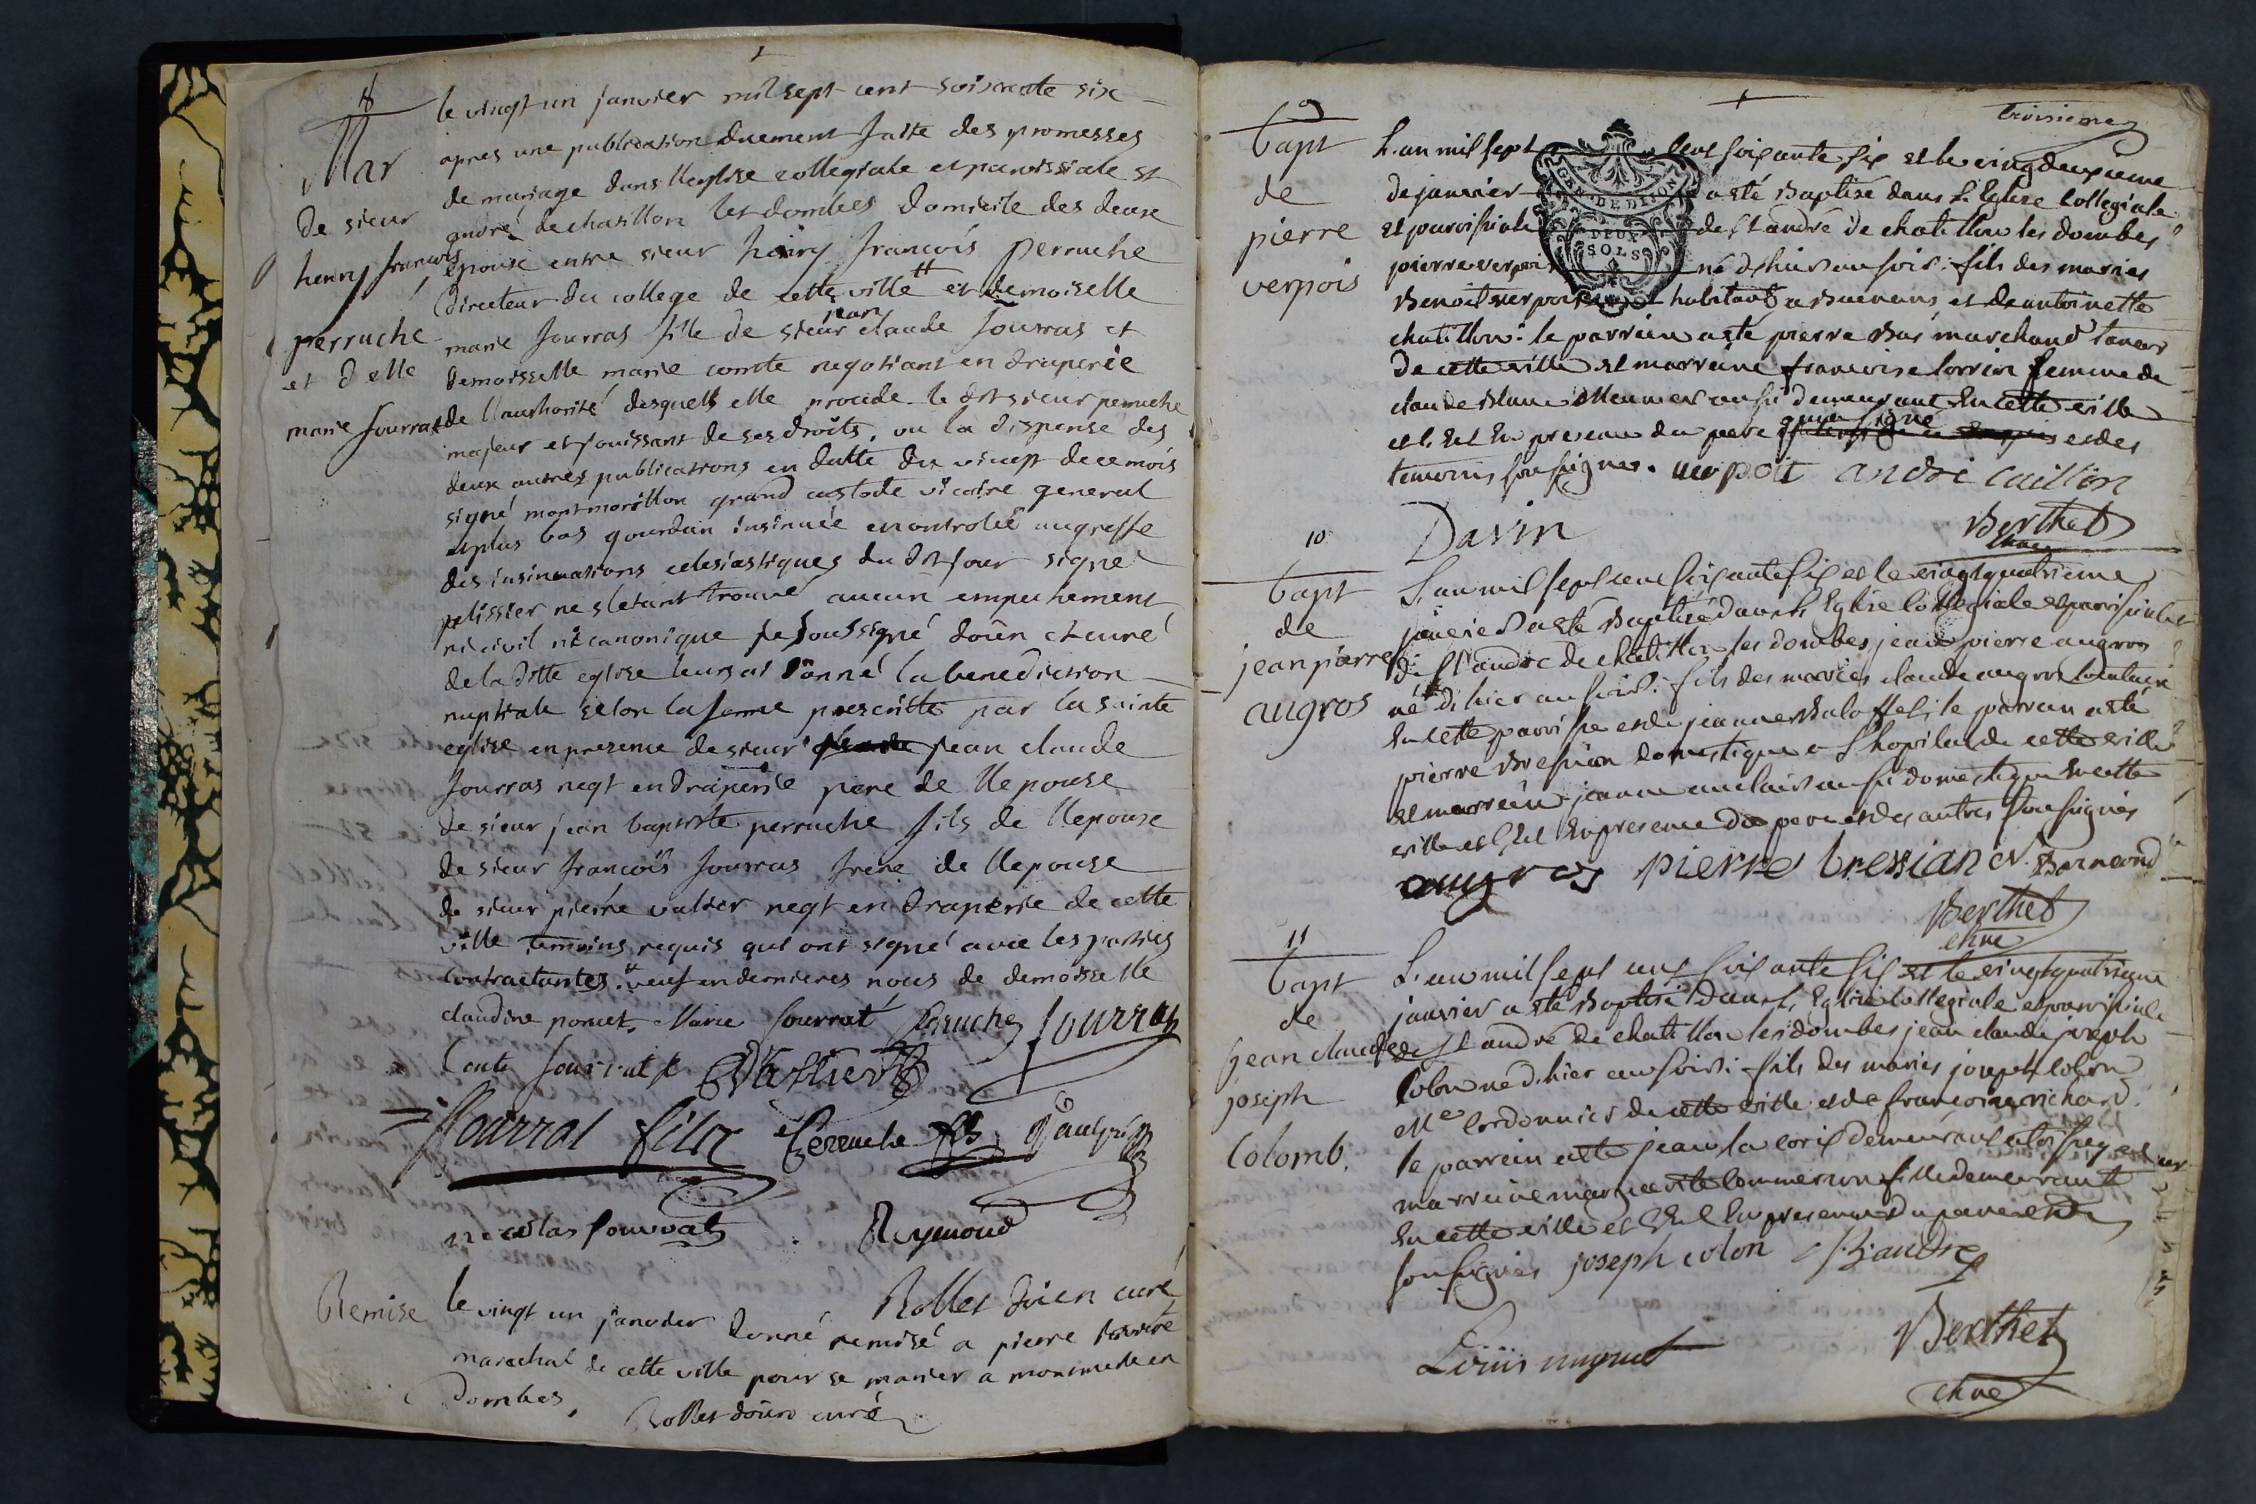 8
Mar
de sieur
henry francois
perruche
et delle
marie Jourrat
le vingt un janvier mil sept cent soixcente six
apres une publication duement faitte des promesses
de mariage dans lleglise collegiale et paroissiale st
andré de chatillon les dombes domicile des deux
epoux entre sieur henry francois perruche
directeur du college de cette ville # et demoiselle
marie Jourras fille de sieur jean claude Jourras et
demoisselle marie comte negotiant en draperie
de llauthorité desquels elle procede le dit sieur perruche
majeur et jouissant de ses droits, vu la dispense des
deux autres publications en datte du vingt de ce mois
signé montmorillon grand custode vicaire general
et plus bas gourdan insinuée et controleé au greffe
des insinuations eclesiastiques du dit jour signe
pelissier ne s'etant trouvé aucun empechement
ni civil ni canonique je soussigné doïen et curé
de la ditte eglise leur ai donné la benediction
nuptiale selon la forme prescritte par la sainte
eglise en presence de sieur jean claude
Jourras negt en draperie pere de llepouse
de sieur jean baptiste perruche fils de llepoux
de sieur francois Jourras frere de llepouse
de sieur pierre valier negt en draperie de cette
ville temoins requis qui ont signé avec les parties
contractantes. # veuf en dernieres noces de demoiselle
claudine poncet. Marie Jourrat Perruche Jourras
Comte Jourrat Vallier
Jourrat filz Perruche fils
nicolas Jourrat Reymond
Rollet doien curé
Remise
le vingt un janvier donné remisé a pierre
marechal de cette ville pour se marier a monimerle en
Dombes,
Rollet doien curé
troisieme
9
bapt
de
pierre
verpois
L'an mil sept cent soixante six et le vingdeuxieme
de janvier a eté Baptisé dans L'Eglise Collegiale
et paroissiale de St andré de chatillon les dombes
pierre verpoix né d'hier au soir: fils des maries
Benoit verpoix habitant a Buenans, et de antoinette
chatillon: le parrein a eté pierre Bas marchand taneur
de cette ville et marreine francoise lorrin femme de
claude Blanc Meunier aussi demeurant En cette ville
et c. Est En presence du pere qui a signé et des
temoins soussignes. verpoit andre caillon
Davin Berthet
vicaire
GEN. DE DIJON
DEUX
SOLS
10
bapt
de
jean pierre
augros
L'an mil sept cent soixante six et le vingtquatrieme
janvier a eté Baptisé dans L'Eglise Collegiale et paroissiale
de St andré de chatillon les dombes jean pierre augros
né d'hier au soir: fils des maries claude augros
En cette paroisse et de jeanne le parrein a eté
pierre Bressian domestique a L'hopital de cette ville
et marreine jeanne auclair aussi domestique En cette
ville et c'Est En presence du pere et des autres soussignés
augros pierre bressian cr. Bernond
Berthet
vicaire
11
bapt
de
jean claude
joseph
Colomb.
L'an mil sept cent soixante six et le vingtquatrieme
janvier a eté Baptisé dans L'Eglise Collegiale et paroissiale
de St andré de chatillon les dombes jean claude joseph
Colon né d'hier au soir: fils des maries joseph colon
Me Cordonnier de cette ville et de francoise richard.
le parrein a eté jean la croix demeurant a et
marreine marguerite Commerson fille demeurante
En cette ville et c'Est En presence du pere et des
soussignés joseph colon B. andre
Louis miguet Berthet
vicaire